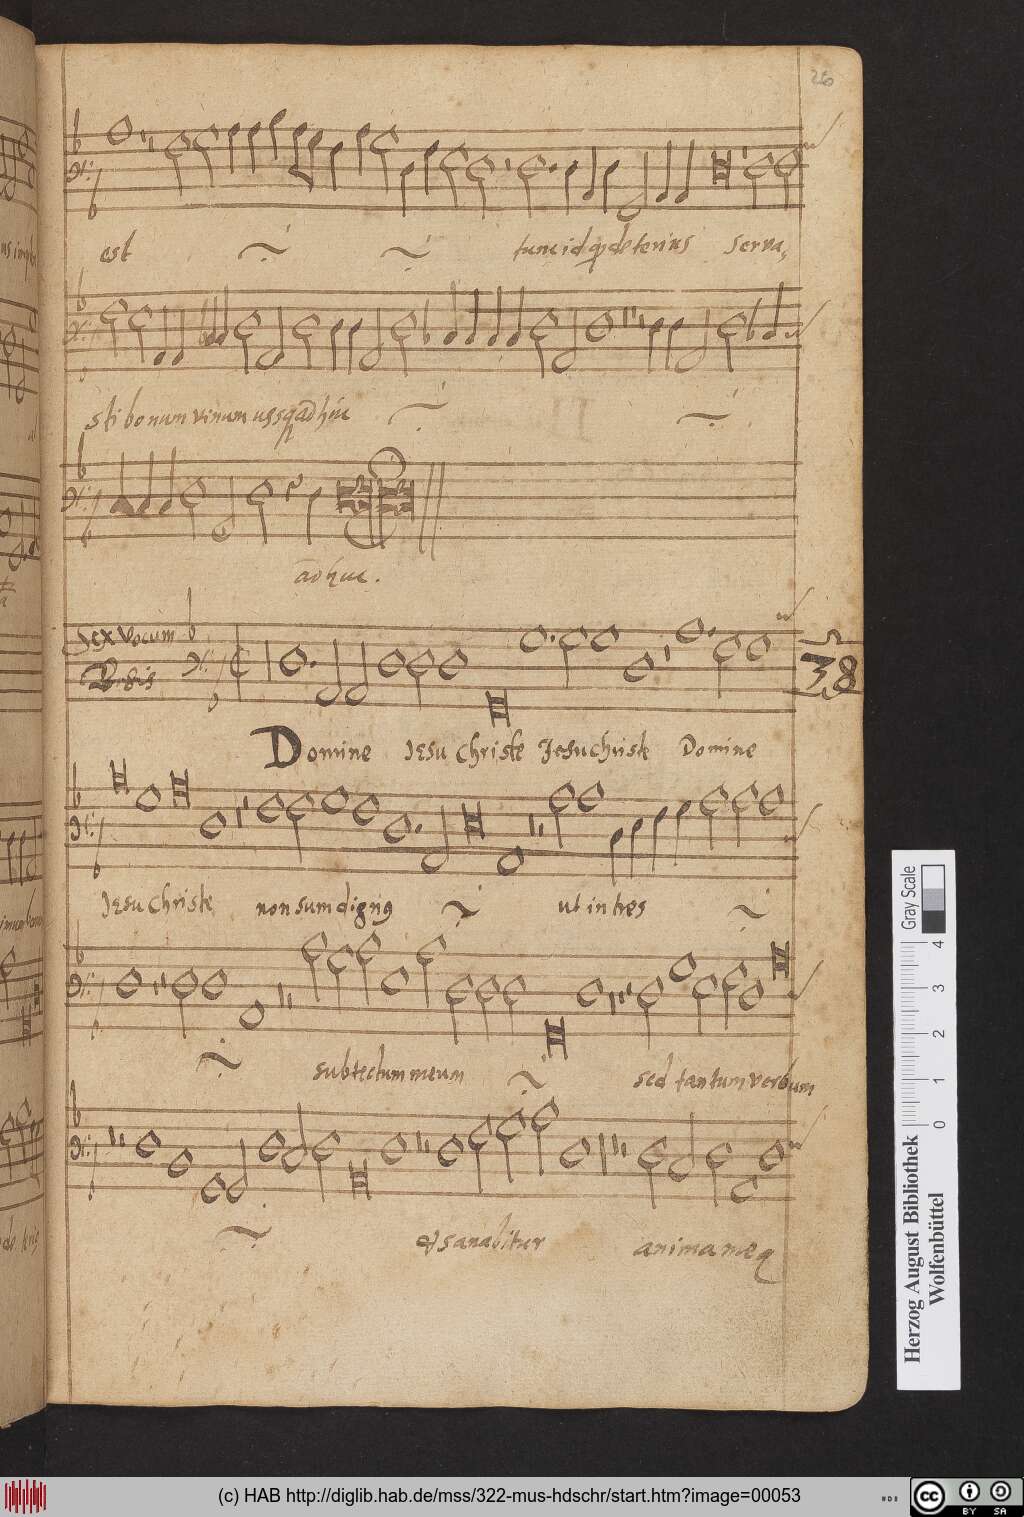 26
est tunc id qd deterius serva
sti bonum vinum usq adhuc
adhuc.
Sex vocum
Basis
38
Domine Jesu Christe Jesu Christe Domine
Jesu Christe non sum dignq ut intres
sub tectum meum sed tantum verbum
& sanabitur anima mea
Gray Scale
0 1 2 3 4
Herzog August Bibliothek
Wolfenbüttel
(c) HAB http://diglib.hab.de/mss/322-mus-hdschr/start.htm?image=00053
cc BY SA